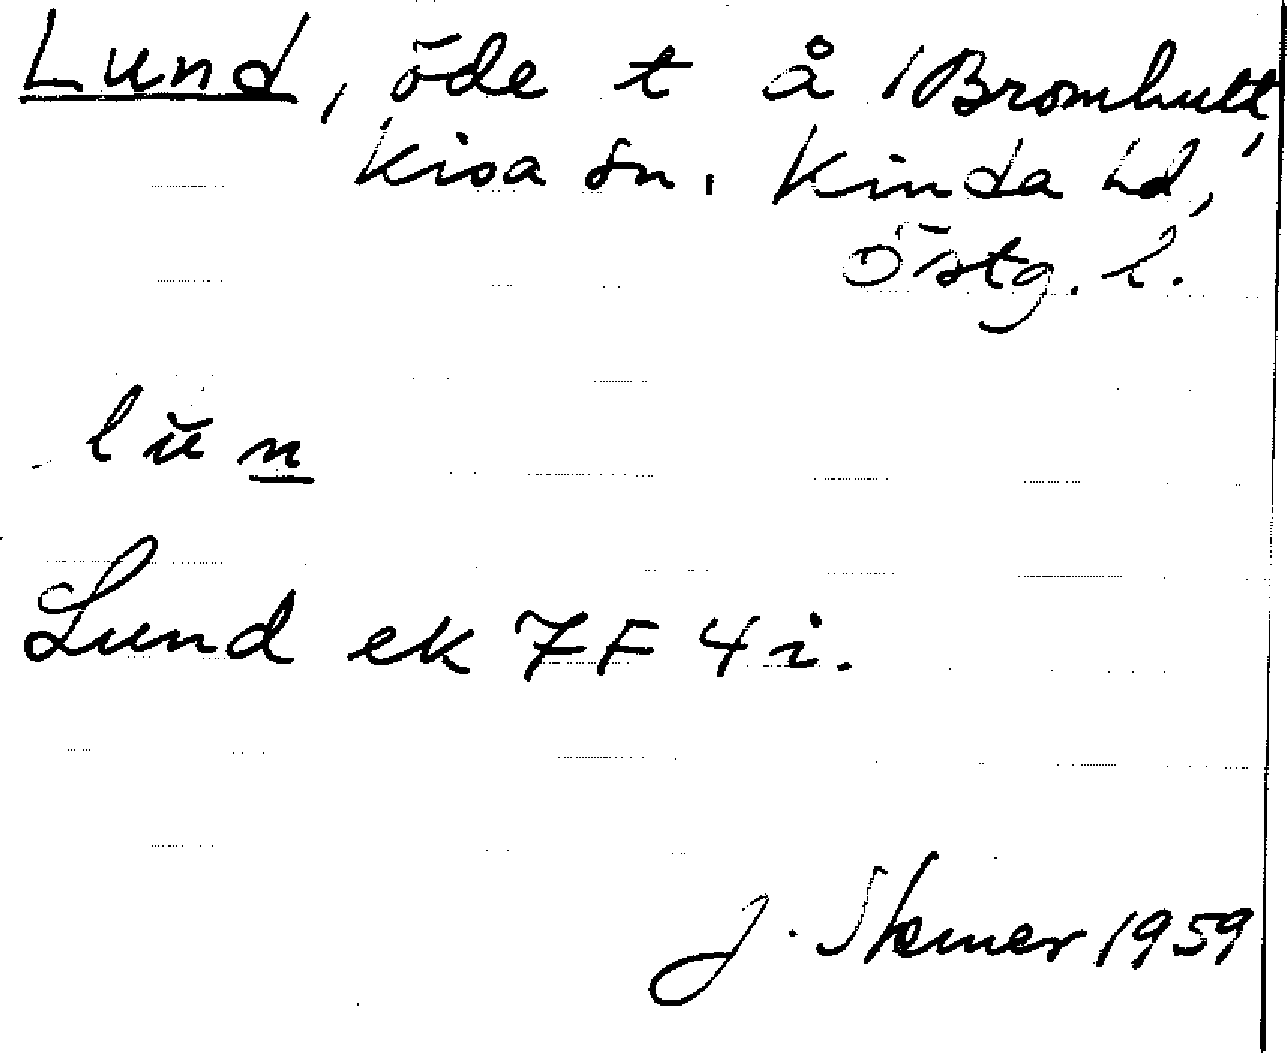 Lund, öde t å 1 Bromhult,
Kisa sn. Kinda hd,
Östg. l.
lŭn
Lund ek 7F 4i.
J. 1959